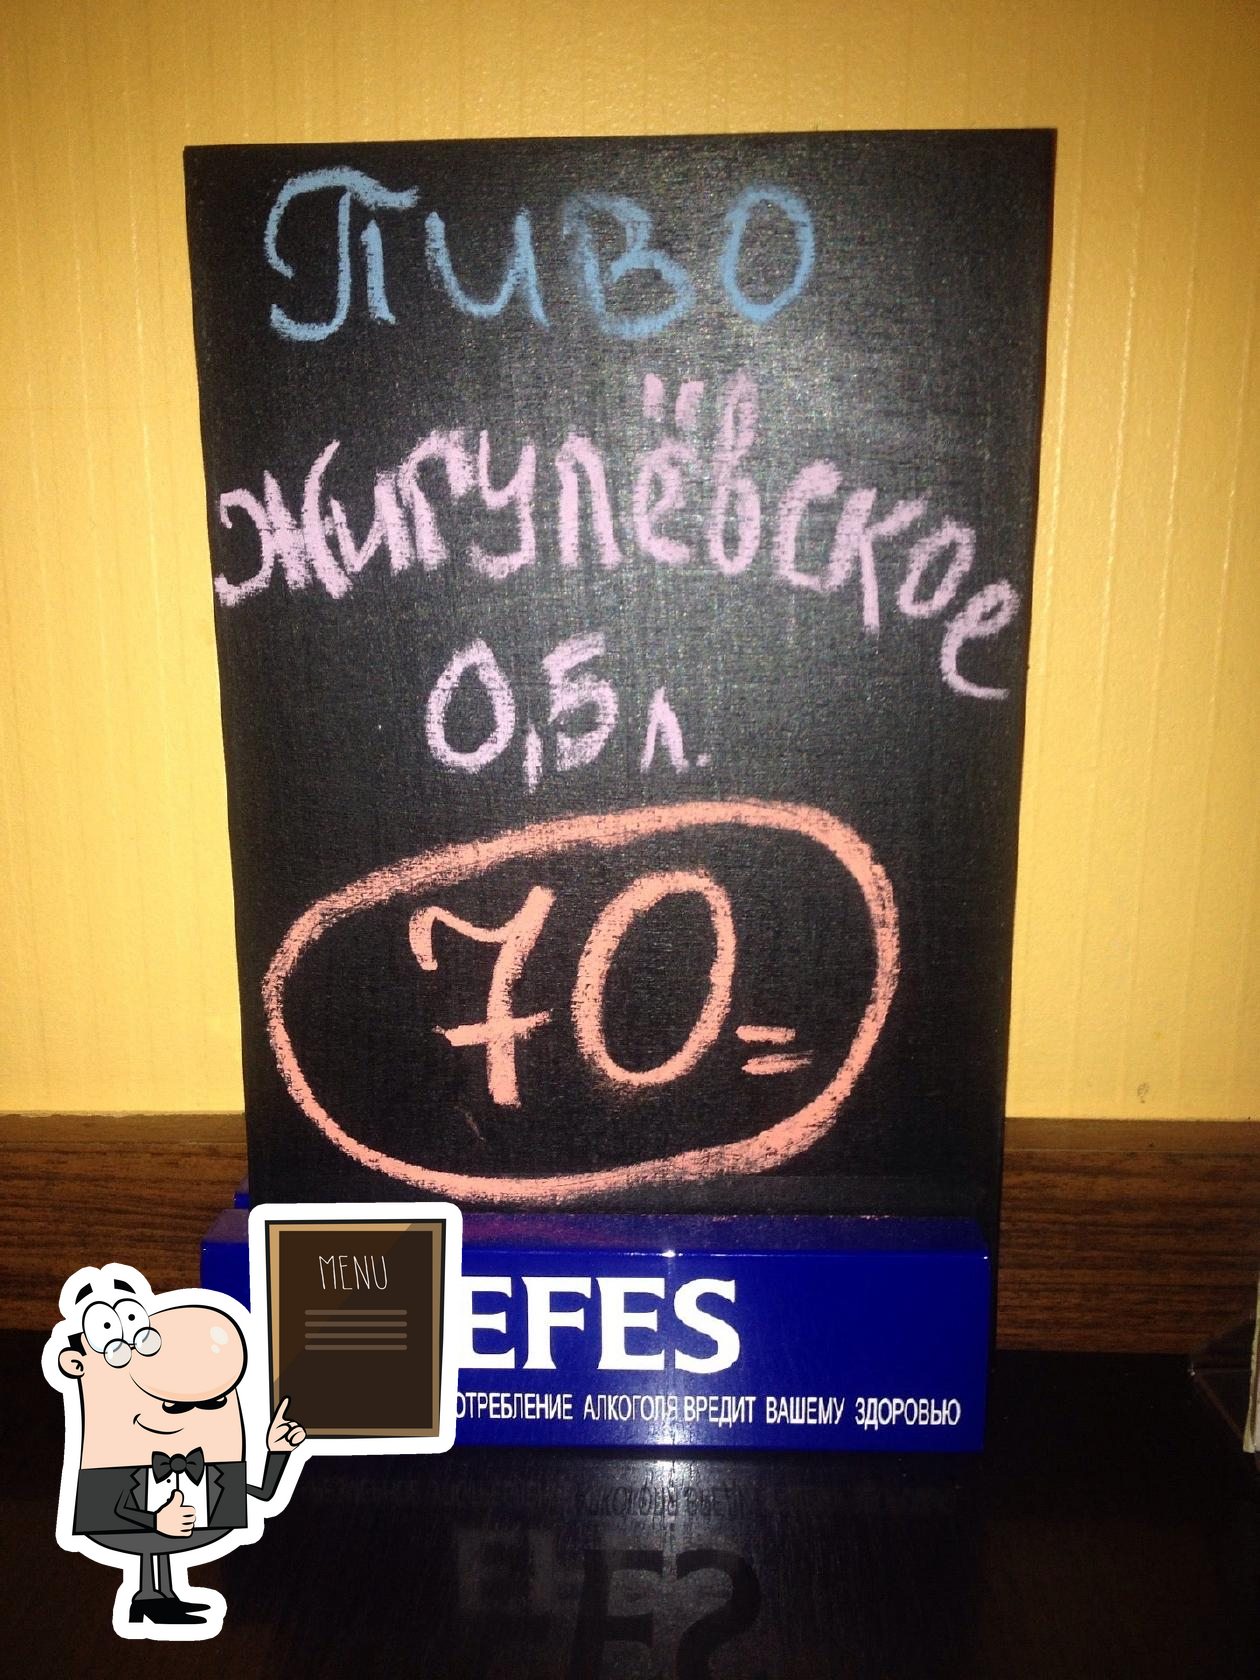 Пиво
Жигулёвское
0,5 л.
70=
MENU
EFES
АЛКОГОЛЯ ВРЕДИТ ВАШЕМУ ЗДОРОВЬЮ